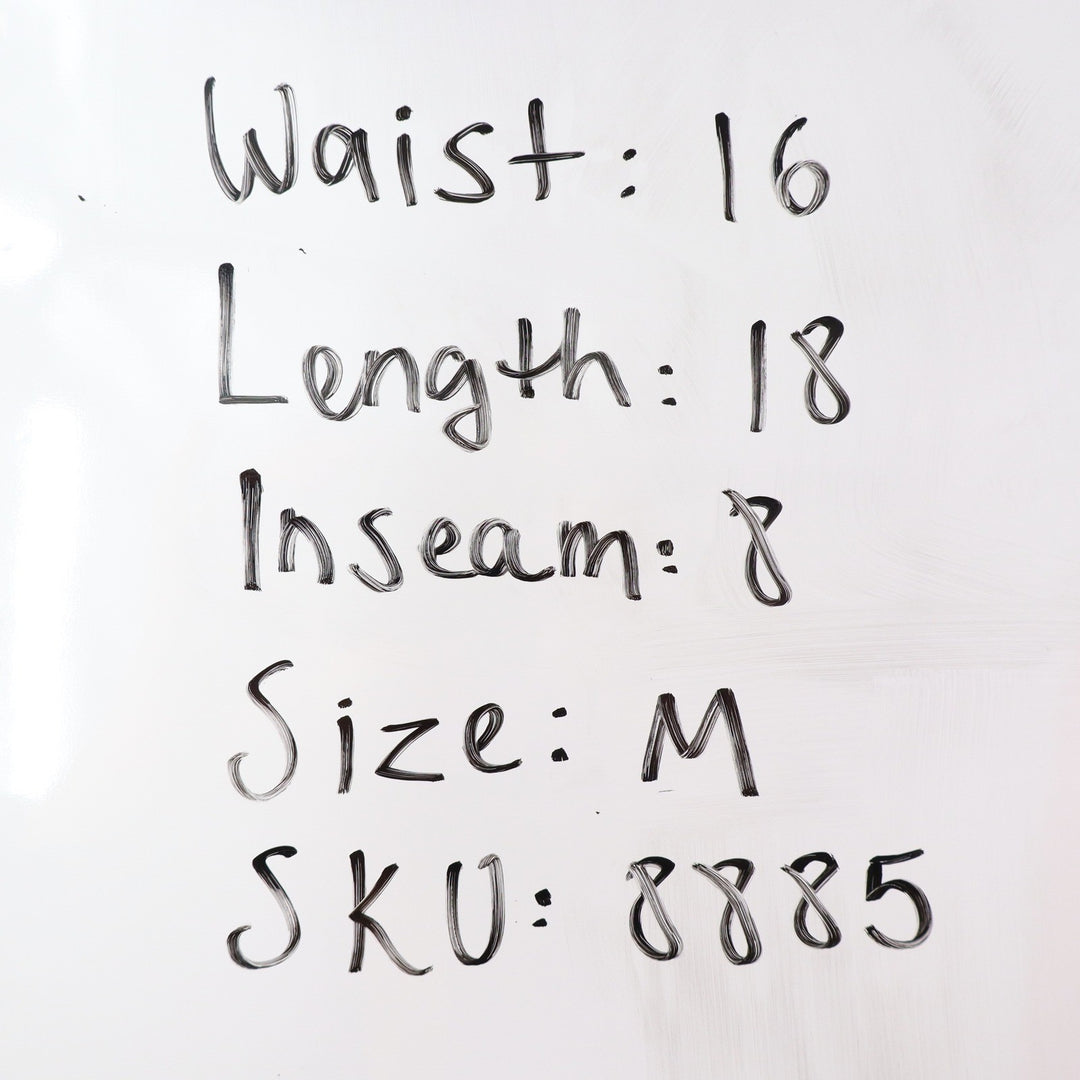 Waist: 16
Length: 18
Inseam: 8
Size: M
SKU: 8885